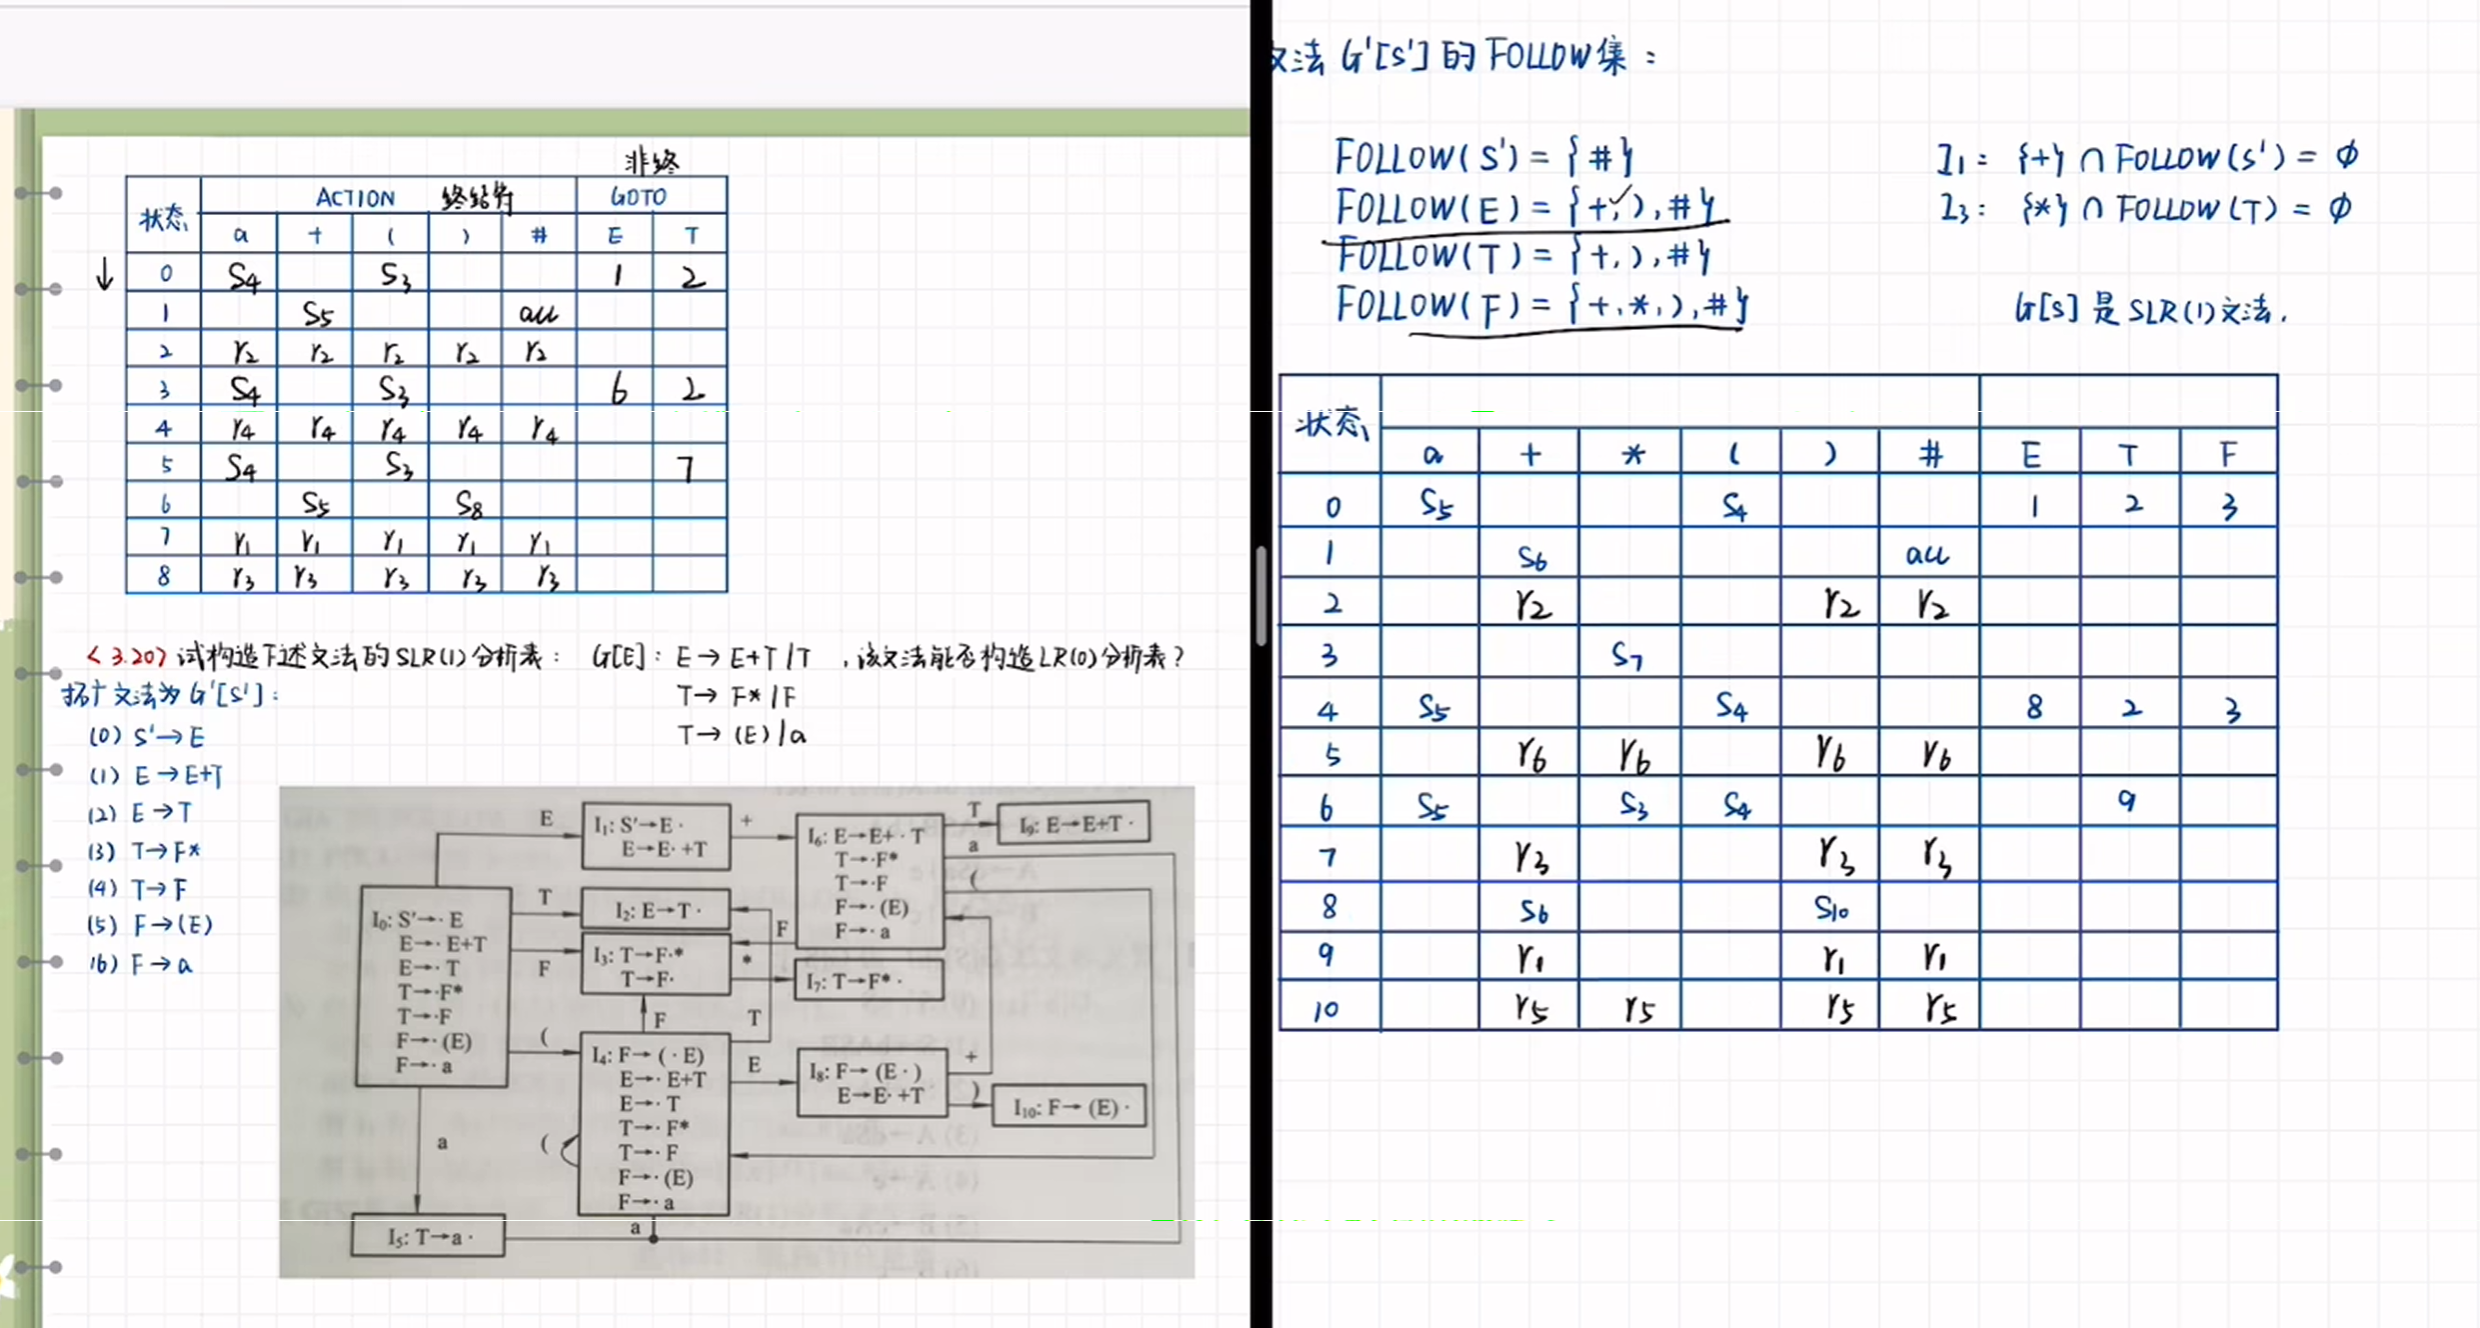 非终
状态 ACTION 终结符 GOTO
a + ( ) # E T
0 S4 S3 1 2
1 S5 acc
2 r2 r2 r2 r2 r2
3 S4 S3 6 2
4 r4 r4 r4 r4 r4
5 S4 S3 7
6 S5 S8
7 r1 r1 r1 r1 r1
8 r3 r3 r3 r3 r3
<3.20> 试构造下述文法的SLR(1)分析表: G[E]: E→E+T|T ,该文法能否构造LR(0)分析表?
T→F*|F
T→(E)|a
拓广文法为G'[S']:
(0) S'→E
(1) E→E+T
(2) E→T
(3) T→F*
(4) T→F
(5) F→(E)
(6) F→a
I0: S'→·E
E→·E+T
E→·T
T→·F*
T→·F
F→·(E)
F→·a
E
T
F
(
a
I1: S'→E·
E→E·+T
+
I2: E→T·
I3: T→F·*
T→F·
*
F
F
T
I4: F→(·E)
E→·E+T
E→·T
T→·F*
T→·F
F→·(E)
F→·a
(
a
E
I5: T→a·
I6: E→E+·T
T→·F*
T→·F
F→·(E)
F→·a
T
a
(
I7: T→F*·
I8: F→(E·)
E→E·+T
+
)
I9: E→E+T·
I10: F→(E)·
文法G'[S']的FOLLOW集:
FOLLOW(S')={#}
FOLLOW(E)={+,),#}
FOLLOW(T)={+,),#}
FOLLOW(F)={+,*,),#}
I1: {+}∩FOLLOW(S')=φ
I3: {*}∩FOLLOW(T)=φ
G[S]是SLR(1)文法.
状态 a + * ( ) # E T F
0 S5 S4 1 2 3
1 S6 acc
2 r2 r2 r2
3 S7
4 S5 S4 8 2 3
5 r6 r6 r6 r6
6 S5 S3 S4 9
7 r3 r3 r3
8 S6 S10
9 r1 r1 r1
10 r5 r5 r5 r5